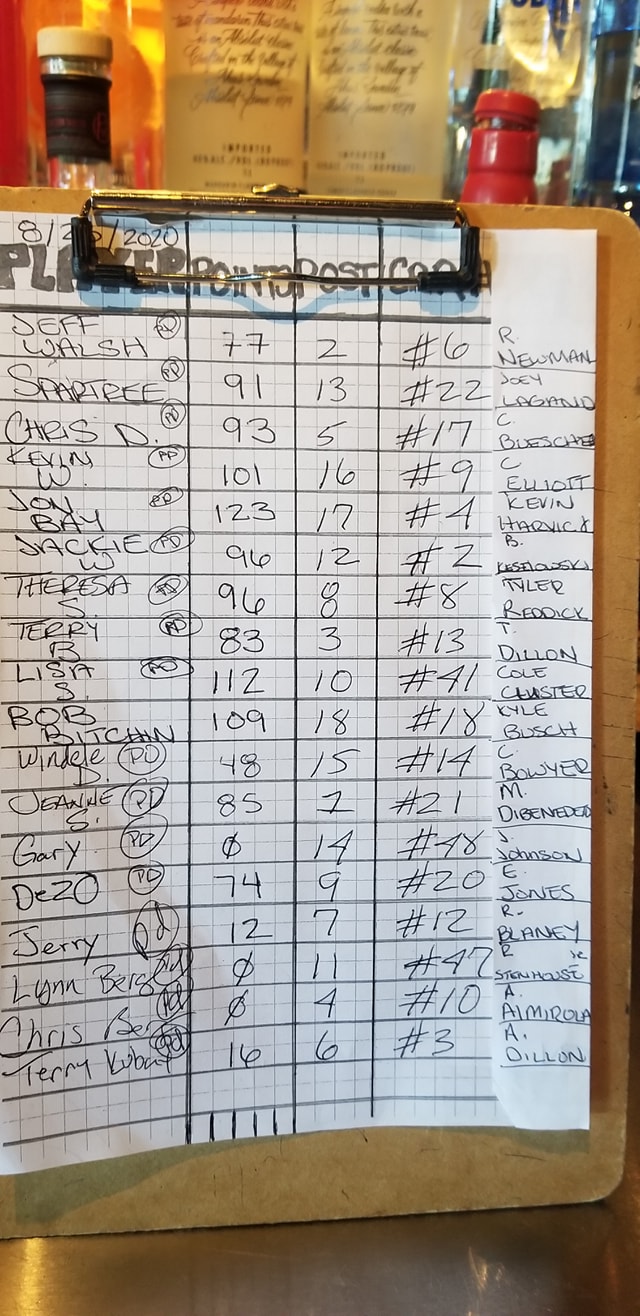 IMPORTED
IMPORTED
8/2 /2020
PLAYER POINTS POST CAR #
JEFF WALSH PD 77 2 #6 R. NEWMAN
SPARTREE PD 91 13 #22 JOEY LAGANO
CHRIS D. PD 93 5 #17 C. BUESCHER
KEVIN W. PD 101 16 #9 C ELLIOTT
JON BAY PD 123 17 #4 KEVIN HARVICK
JACKIE W PD 96 12 #2 B. KESELOWSKI
THERESA S. PD 96 8 #8 TYLER REDDICK
TERRY B PD 83 3 #13 T. DILLON
LISA S. PD 112 10 #41 COLE CUUSTER
BOB BITCHIN 109 18 #18 KYLE BUSCH
Windele D. PD 48 15 #14 C. BOWYER
JEANNE S. PD 85 1 #21 M. DIBENEDEDO
Gary PD Ø 14 #48 J. Johnson
DeZO PD 74 9 #20 E. JONES
Jerry pd 12 7 #12 R. BLANEY
Lynn Berg pd Ø 11 #47 R STENHOUSE JR
Chris Ber pd Ø 4 #10 A. AIMIROLA
Terry Kubat pd 16 6 #3 A. DILLON